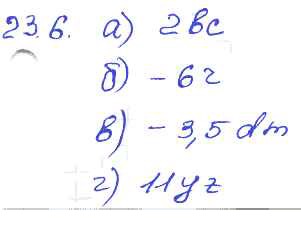 23.6. а) 2bc
б) - 6г
в) - 3,5dm
г) 11yz